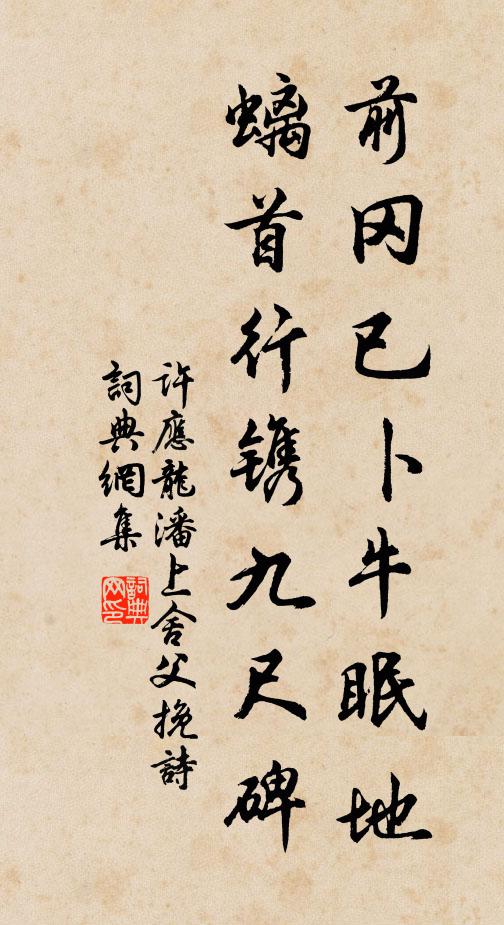 前冈已卜牛眠地
螭首行镌九尺碑
許應龍潘上舍父挽詩
詞典網集
詞典网印